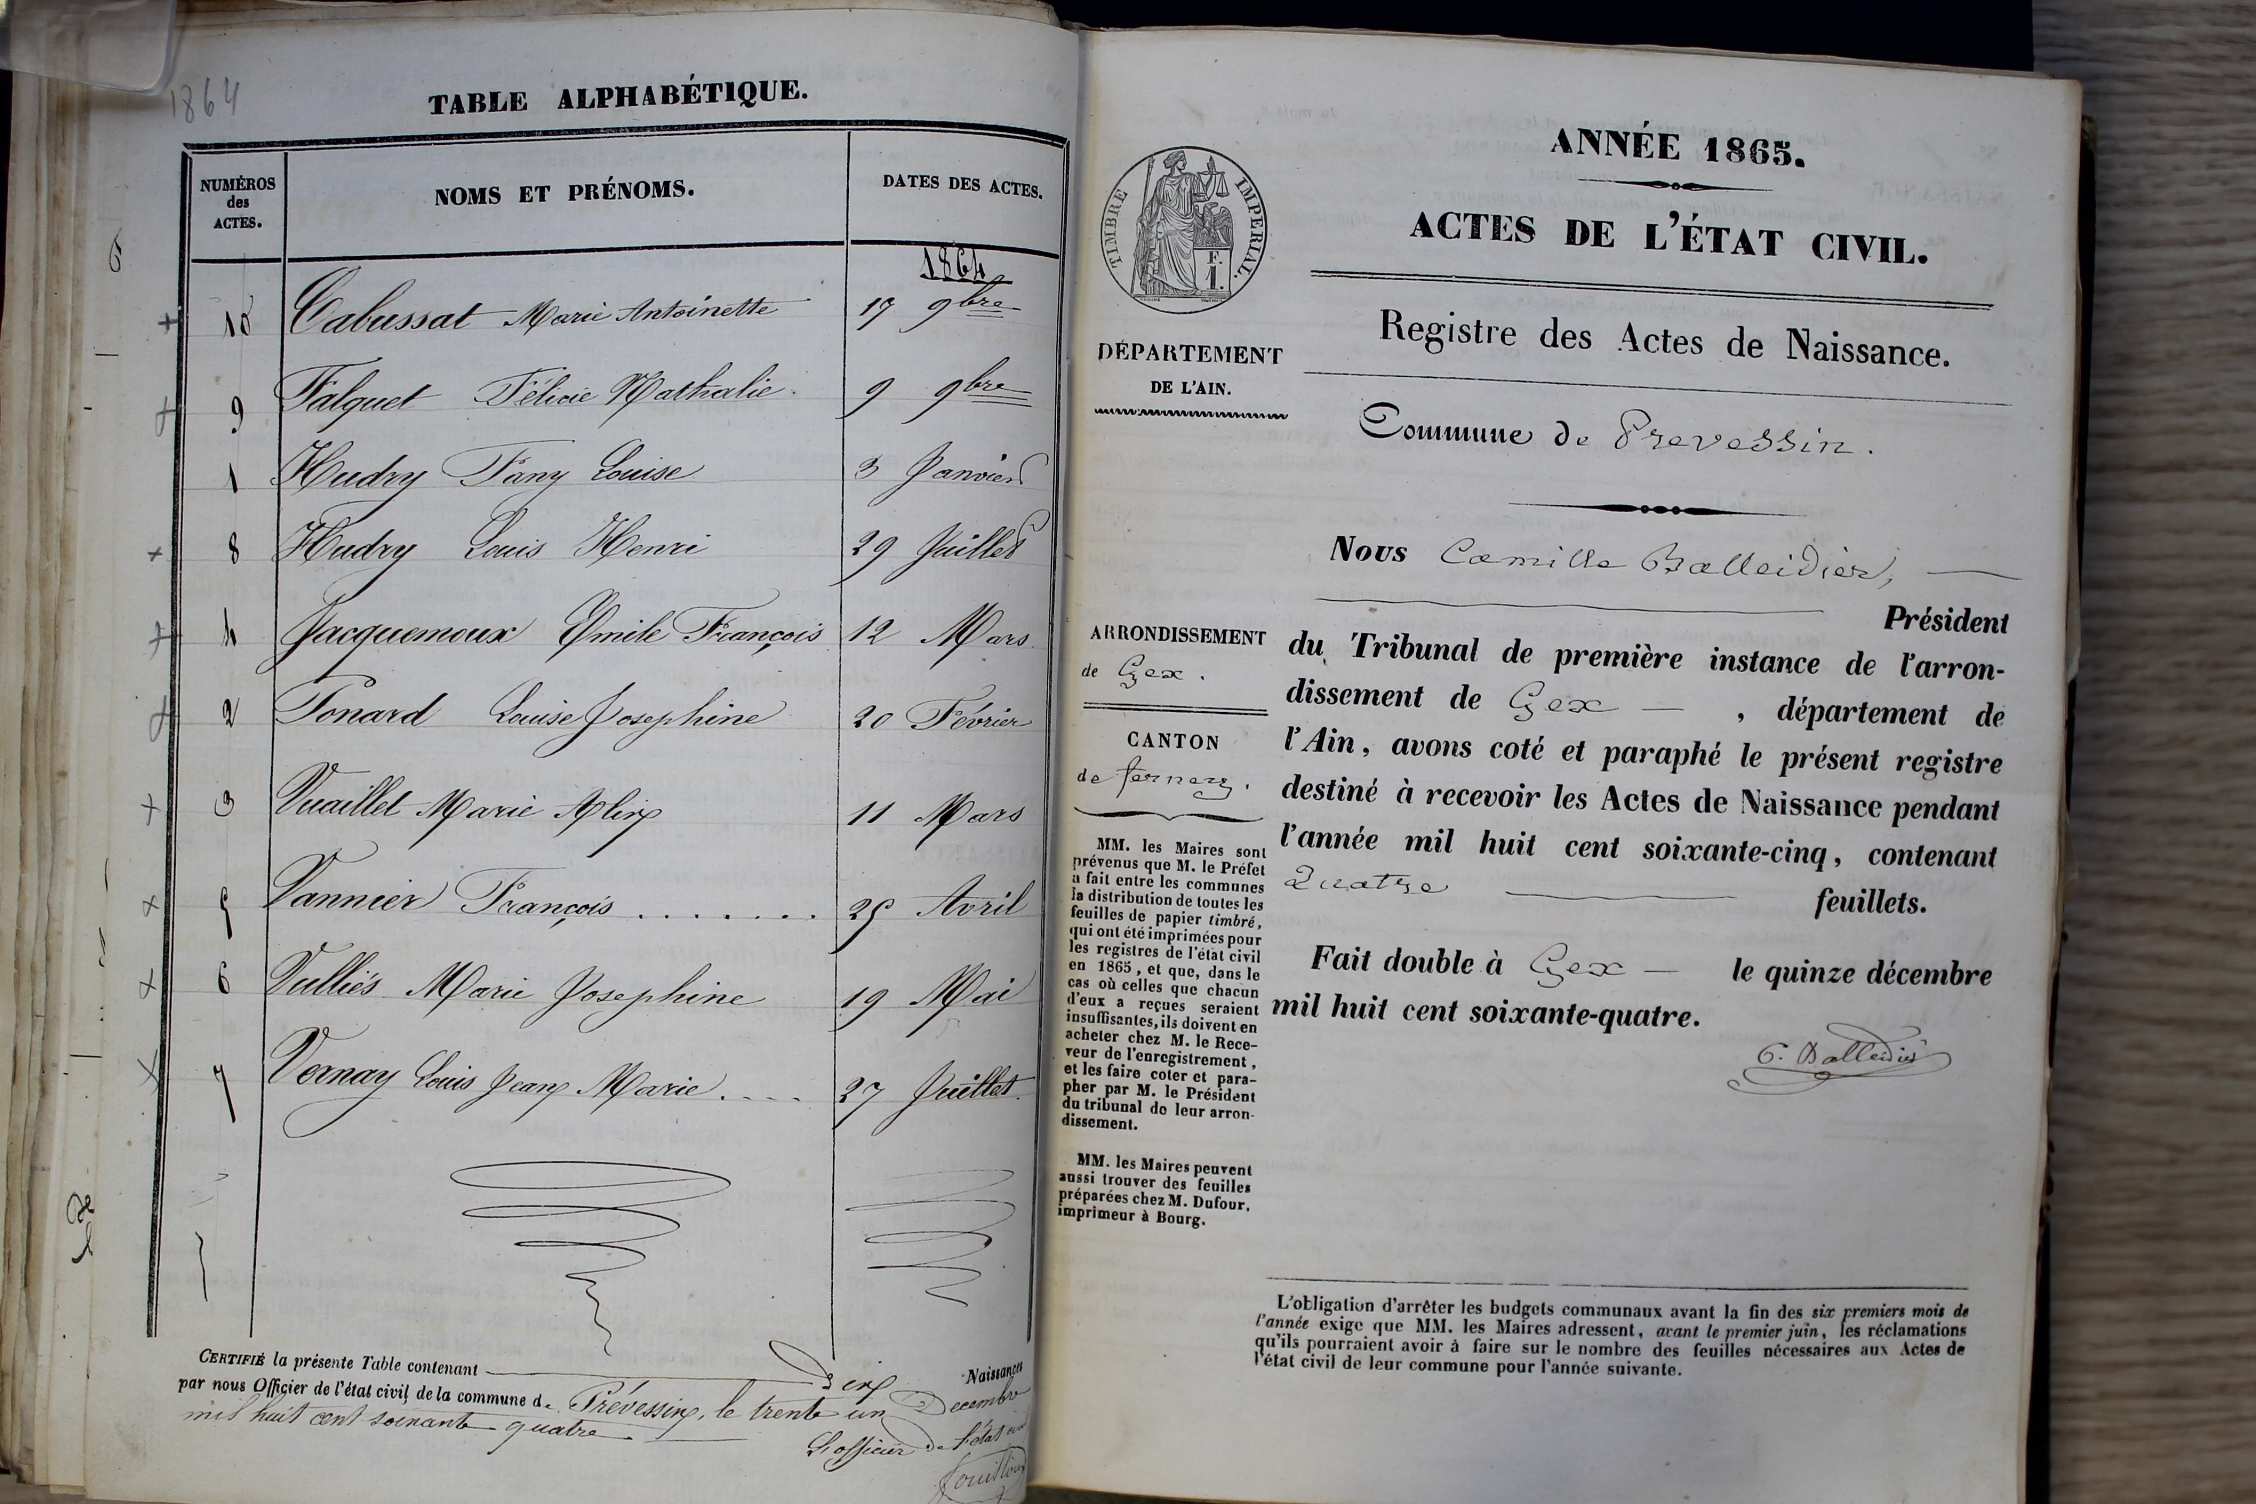 1864
TABLE ALPHABÉTIQUE.
NUMÉROS
des
ACTES.
NOMS ET PRÉNOMS.
DATES DES ACTES.
1864
10 Cabussat Marie Antoinette 17 9bre
9 Falquet Félicie Nathalie 9 9bre
1 Hudry Fany Louise 3 Janvier
8 Hudry Louis Henri 29 Juillet
4 Jacquemoux Emile François 12 Mars
2 Ponard Louise Josephine 20 Février
3 Vuaillet Marie Alix 11 Mars
5 Vannier François ....... 25 Avril
6 Vulliés Marie Josephine 19 Mai
7 Vernay Louis Jean Marie .... 27 Juillet.
CERTIFIÉ la présente Table contenant dix Naissances
par nous Officier de l'état civil de la commune de Prévessin, le trente un Decembre
mil huit cent soixante quatre.
L'officier de l'état civil
6
TIMBRE IMPERIAL.
F.
1.
ANNÉE 1865.
ACTES DE L'ÉTAT CIVIL.
Registre des Actes de Naissance.
DÉPARTEMENT
DE L'AIN.
Commune de Prevessin.
Nous Camille Balleidier,
Président
ARRONDISSEMENT
de Gex.
CANTON
de ferney.
du Tribunal de première instance de l'arron-
dissement de Gex, département de
l'Ain, avons coté et paraphé le présent registre
destiné à recevoir les Actes de Naissance pendant
l'année mil huit cent soixante-cinq, contenant
Quatre feuillets.
Fait double à Gex le quinze décembre
mil huit cent soixante-quatre.
C. Balleidier
MM. les Maires sont
prévenus que M. le Préfet
a fait entre les communes
la distribution de toutes les
feuilles de papier timbré,
qui ont été imprimées pour
les registres de l'état civil
en 1865, et que, dans le
cas où celles que chacun
d'eux a reçues seraient
insuffisantes, ils doivent en
acheter chez M. le Rece-
veur de l'enregistrement,
et les faire coter et para-
pher par M. le Président
du tribunal de leur arron-
dissement.
MM. les Maires peuvent
aussi trouver des feuilles
préparées chez M. Dufour,
imprimeur à Bourg.
L'obligation d'arrêter les budgets communaux avant la fin des six premiers mois de
l'année exige que MM. les Maires adressent, avant le premier juin, les réclamations
qu'ils pourraient avoir à faire sur le nombre des feuilles nécessaires aux Actes de
l'état civil de leur commune pour l'année suivante.